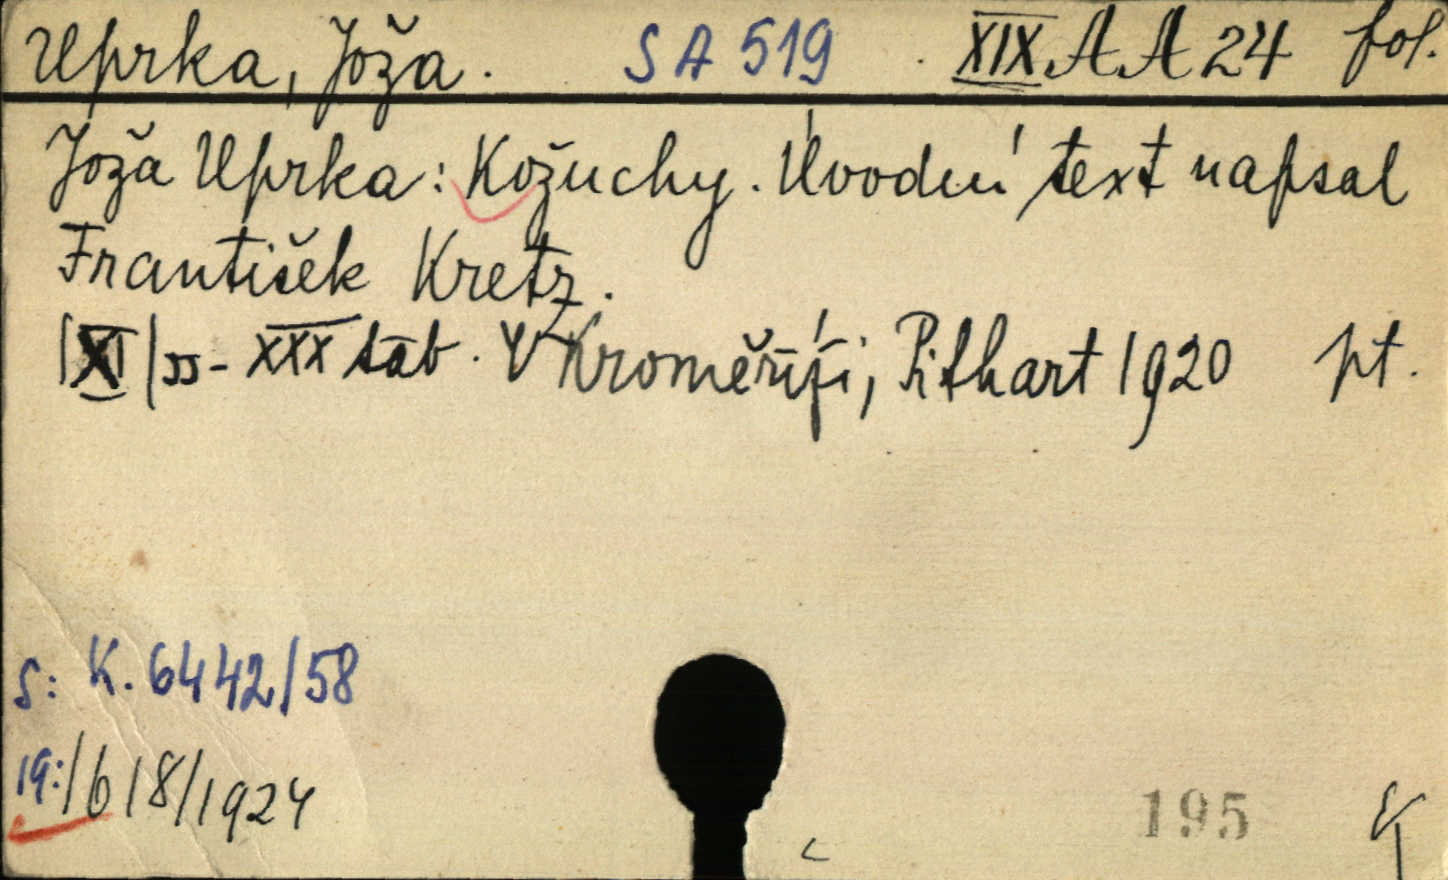 Uprka, Joža. SA 519 XIX AA 24 fol.
Joža Uprka: Kožuchy. Úvodní text napsal
František Kretz.
|XI| ss - XXX tab. V Kroměříži, Pithart 1920 pt.
s: K. 6442/58
19:/618/1924
195